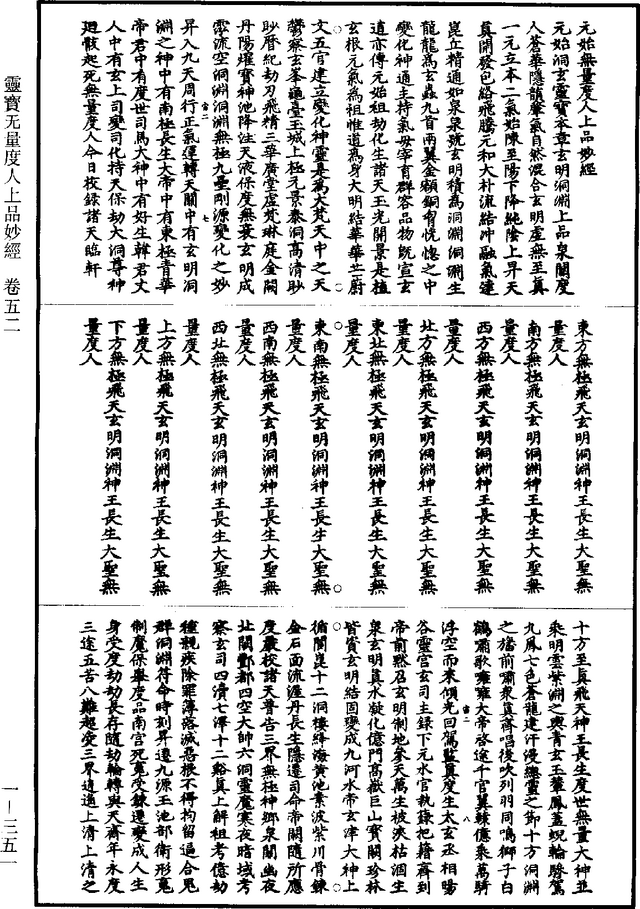 元始無量度人上品妙經
元始洞玄靈寶本章玄明洞淵上品泉闓度
人蒼華隱龍蕐氣自然混合玄明虛無至真
一元立本二氣始陳至陽下降純陰上昇天
真開發包絡飛騰元和大朴流結沖融氣運
崑丘精通如泉泉號玄明積爲洞淵洞淵生
龍龍爲玄蟲九首兩翼金額銅脊恍惚之中
變化神通主持氣母宰育群容品物旣宣玄
道亦傳元始祖劫化生諸天玉光開景是植
玄根元氣爲祖惟道爲身大明結華華芒蔚
文五官建立變化神靈是爲大梵天中之天
鬱察玄峯龜臺王城上極元景泰洞高清眇
眇曆紀劫刃飛精三華廣堂虛梵琳庭金闕
丹陽擢寶神池降注天液保度無衰玄明成
雲流空洞淵洞淵無極九壘剛源變化之妙
昇入九天周行正氣運轉天關中有玄明洞
淵之神中有南極長生大帝中有東極青華
帝君中有度世司馬大神中有好生韓君丈
人中有玄上司變司化持天保劫大洞尊神
迴骸起死無量度人今日校錄諸天臨軒
東方無極飛天玄明洞淵神王長生大聖無
量度人
南方無極飛天玄明洞淵神王長生大聖無
量度人
西方無極飛天玄明洞淵神王長生大聖無
量度人
北方無極飛天玄明洞淵神王長生大聖無
量度人
東北無極飛天玄明洞淵神王長生大聖無
量度人
東南無極飛天玄明洞淵神王長生大聖無
量度人
西南無極飛天玄明洞淵神王長生大聖無
量度人
西北無極飛天玄明洞淵神王長生大聖無
量度人
上方無極飛天玄明洞淵神王長生大聖無
量度人
下方無極飛天玄明洞淵神王長生大聖無
量度人
十方至真飛天神王長生度世無量大神並
乘明雲紫淵之輿青玄玉輦鳳蓋蜺輪騑駕
九鳳七色蒼龍建汗漫總靈之節十方洞淵
之旛前嘯衆真齊唱後吹列羽同鳴獅子白
鶴嘯歌嗈嗈大帝啓途千官翼轅億乘萬騎
浮空而來傾光回駕監真度生太玄丞相暘
谷靈官玄司主錄下元水官執錄把籍齊到
帝前黙召玄明制地參天萬生被浹枯涸生
泉玄明真水凝化億門高嶽巨山寶闕珍林
皆資玄明結固變成九河水帝玄津大神上
循閬崑十二洞樓絳海黄池素波紫川骨鍊
金石面流渥丹長生隱遷司命帝闕隨所應
度嚴校諸天普告三界無極神鄉泉關幽夜
北闕酆都四空大帥六洞靈魔寒夜暗域考
察玄司四瀆七澤十二谿真上解祖考億劫
種親疾除罪簿落滅惡根不得拘留逼合鬼
群洞淵符命時刻昇遷九源王池部衛形魂
制魔保舉度品南宫死魂受鍊遷變成人生
身受度劫劫長存隨劫輪轉與天齊年永度
三途五苦八難超凌三界逍遥上清上清之
靈寶无量度人上品妙經 卷五二
一—三五一